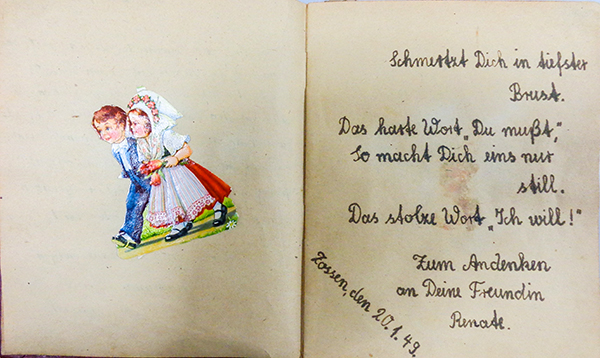 Schmertzt Dich in tiefster
Brust.
Das harte Wort „Du mußt,"
So macht Dich eins nur
still.
Das stolze Wort „Ich will!"
Zum Andenken
an Deine Freundin
Renate.
Zossen, den 20.1.49.